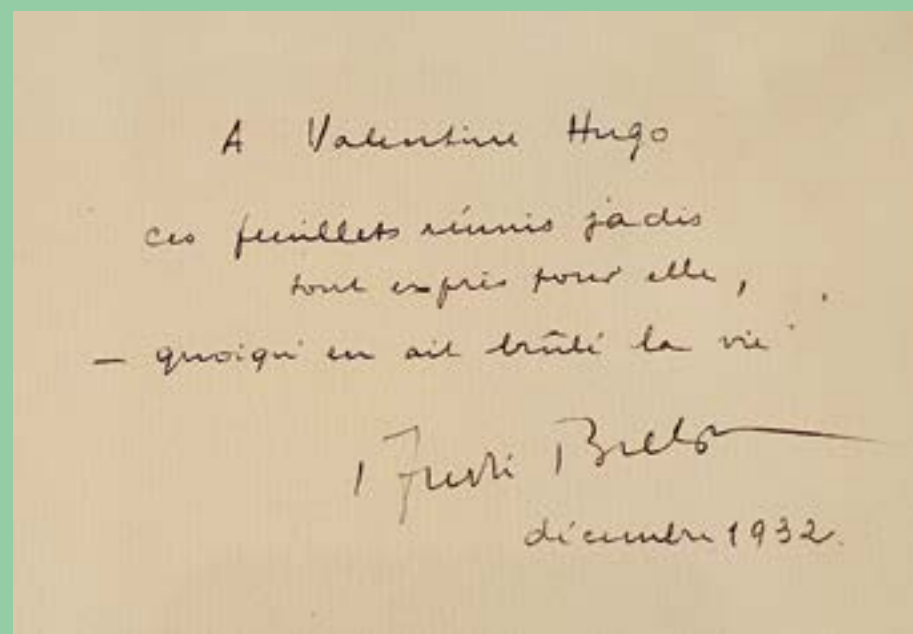 A Valentine Hugo
ces feuillets réunis jadis
tout exprès pour elle,
— quoiqu'en ait brûlé la vie
André Breton
décembre 1932.